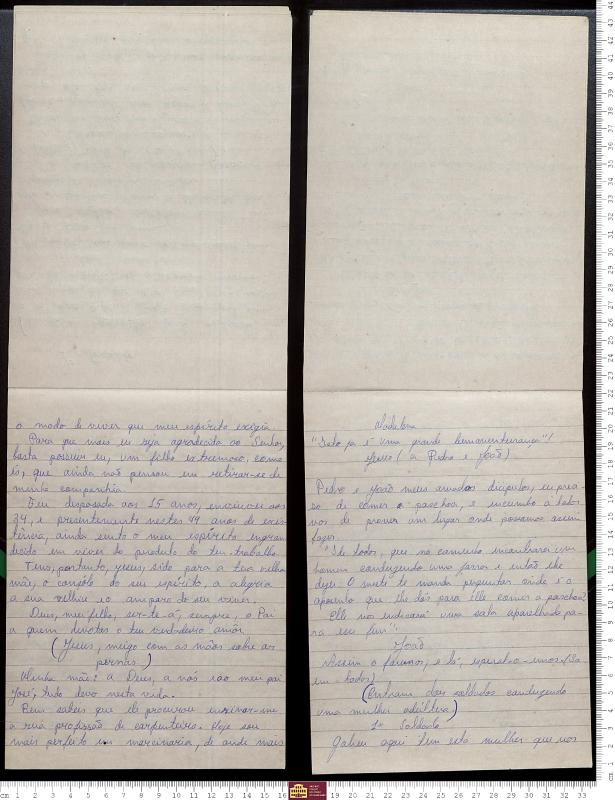 o modo de viver que meu espirito exigia.
Para que mais eu seja agradecida ao Senhor,
basta possuir eu, um filho extremoso, como
és, que ainda não pensou em retirar-se de
minha companhia.
Eu desposada aos 15 anos, enviuvei aos
34, e presentemente nestes 49 anos de exis-
tência, ainda sinto o meu espirito engran-
decido em viver do produto do teu trabalho.
Tens, portanto, Jesus, sido para a tua velha
mãe, o consolo do seu espirito, a alegria
a sua velhice e o amparo do seu viver.
Deus, meu filho, ser-te-á, sempre, o Pai
a quem devotas o teu verdadeiro amôr.
(Jesus, meigo com as mãos sobre as
pernas)
Minha mãe: a Deus, a nós ao meu pai
José, tudo devo nesta vida.
Bem sabes que êle procurou ensinar-me
a sua profissão de carpinteiro. Hoje sou
mais perfeito em marcinaria, de onde mais
Madalena
"Isto já é uma grande bemaventurança"!
Jesus (a Pedro e João)
Pedro e João meus amados discipulos, eu preci-
so de comer a paschoa, e incumbo a todos
vos de prover um lugar onde possamos assim
fazer.
"Ide todos, que no caminho encontrareis um
homem conduzindo uma jarra e então lhe
dizei: O mestre te manda perguntar onde é o
aposento que lhe dás para elle comer a paschoa?
Elle nos indicará uma sala aparelhada pa-
ra seu fim".
João
Assim o faremos, e lá, esperal-o-emos. (Sa-
em todos)
(Entram dois soldados conduzindo
uma mulher adúltera)
1º Soldado
aqui tem esta mulher que nos